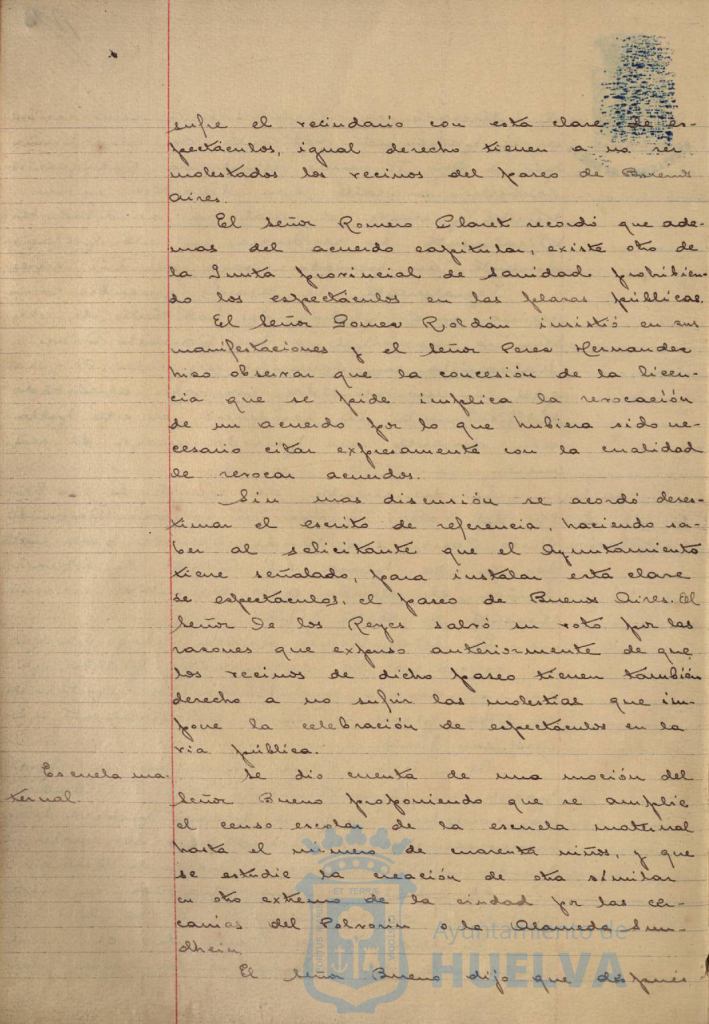 sufre el vecindario con esta clase de es-
pectáculos, igual derecho tienen a no ser
molestados los vecinos del paseo de Buenos
Aires.
El Señor Romero Claret recordó que ade-
mas del acuerdo capitular, existe otro de
la Junta provincial de Sanidad prohibien-
do los espectáculos en las plazas públicas.
El Señor Gomez Roldán insistió en sus
manifestaciones y el Señor Perez Hernandez
hizo observar que la concesión de la licen-
cia que se pide implica la revocación
de un acuerdo por lo que hubiera sido ne-
cesario citar expresamente con la cualidad
de revocar acuerdos.
Sin mas discusión se acordó deses-
timar el escrito de referencia, haciendo sa-
ber al solicitante que el Ayuntamiento
tiene señalado, para instalar esta clase
se espectaculos, el paseo de Buenos Aires. El
Señor De los Reyes salvó su voto por las
razones que expuso anteriormente de que
los vecinos de dicho paseo tienen también
derecho a no sufrir las molestias que im-
pone la celebración de espectáculos en la
via pública.
Escuela ma-
ternal
Se dio cuenta de una moción del
Señor Bueno proponiendo que se amplie
el censo escolar de la escuela maternal
hasta el número de cuarenta niños, y que
se estudie la creación de otra similar
en otro extremo de la ciudad por las cer-
canias del Polvorin o la Alameda Sun-
dheim.
El Señor Bueno dijo que después
Ayuntamiento de
HUELVA